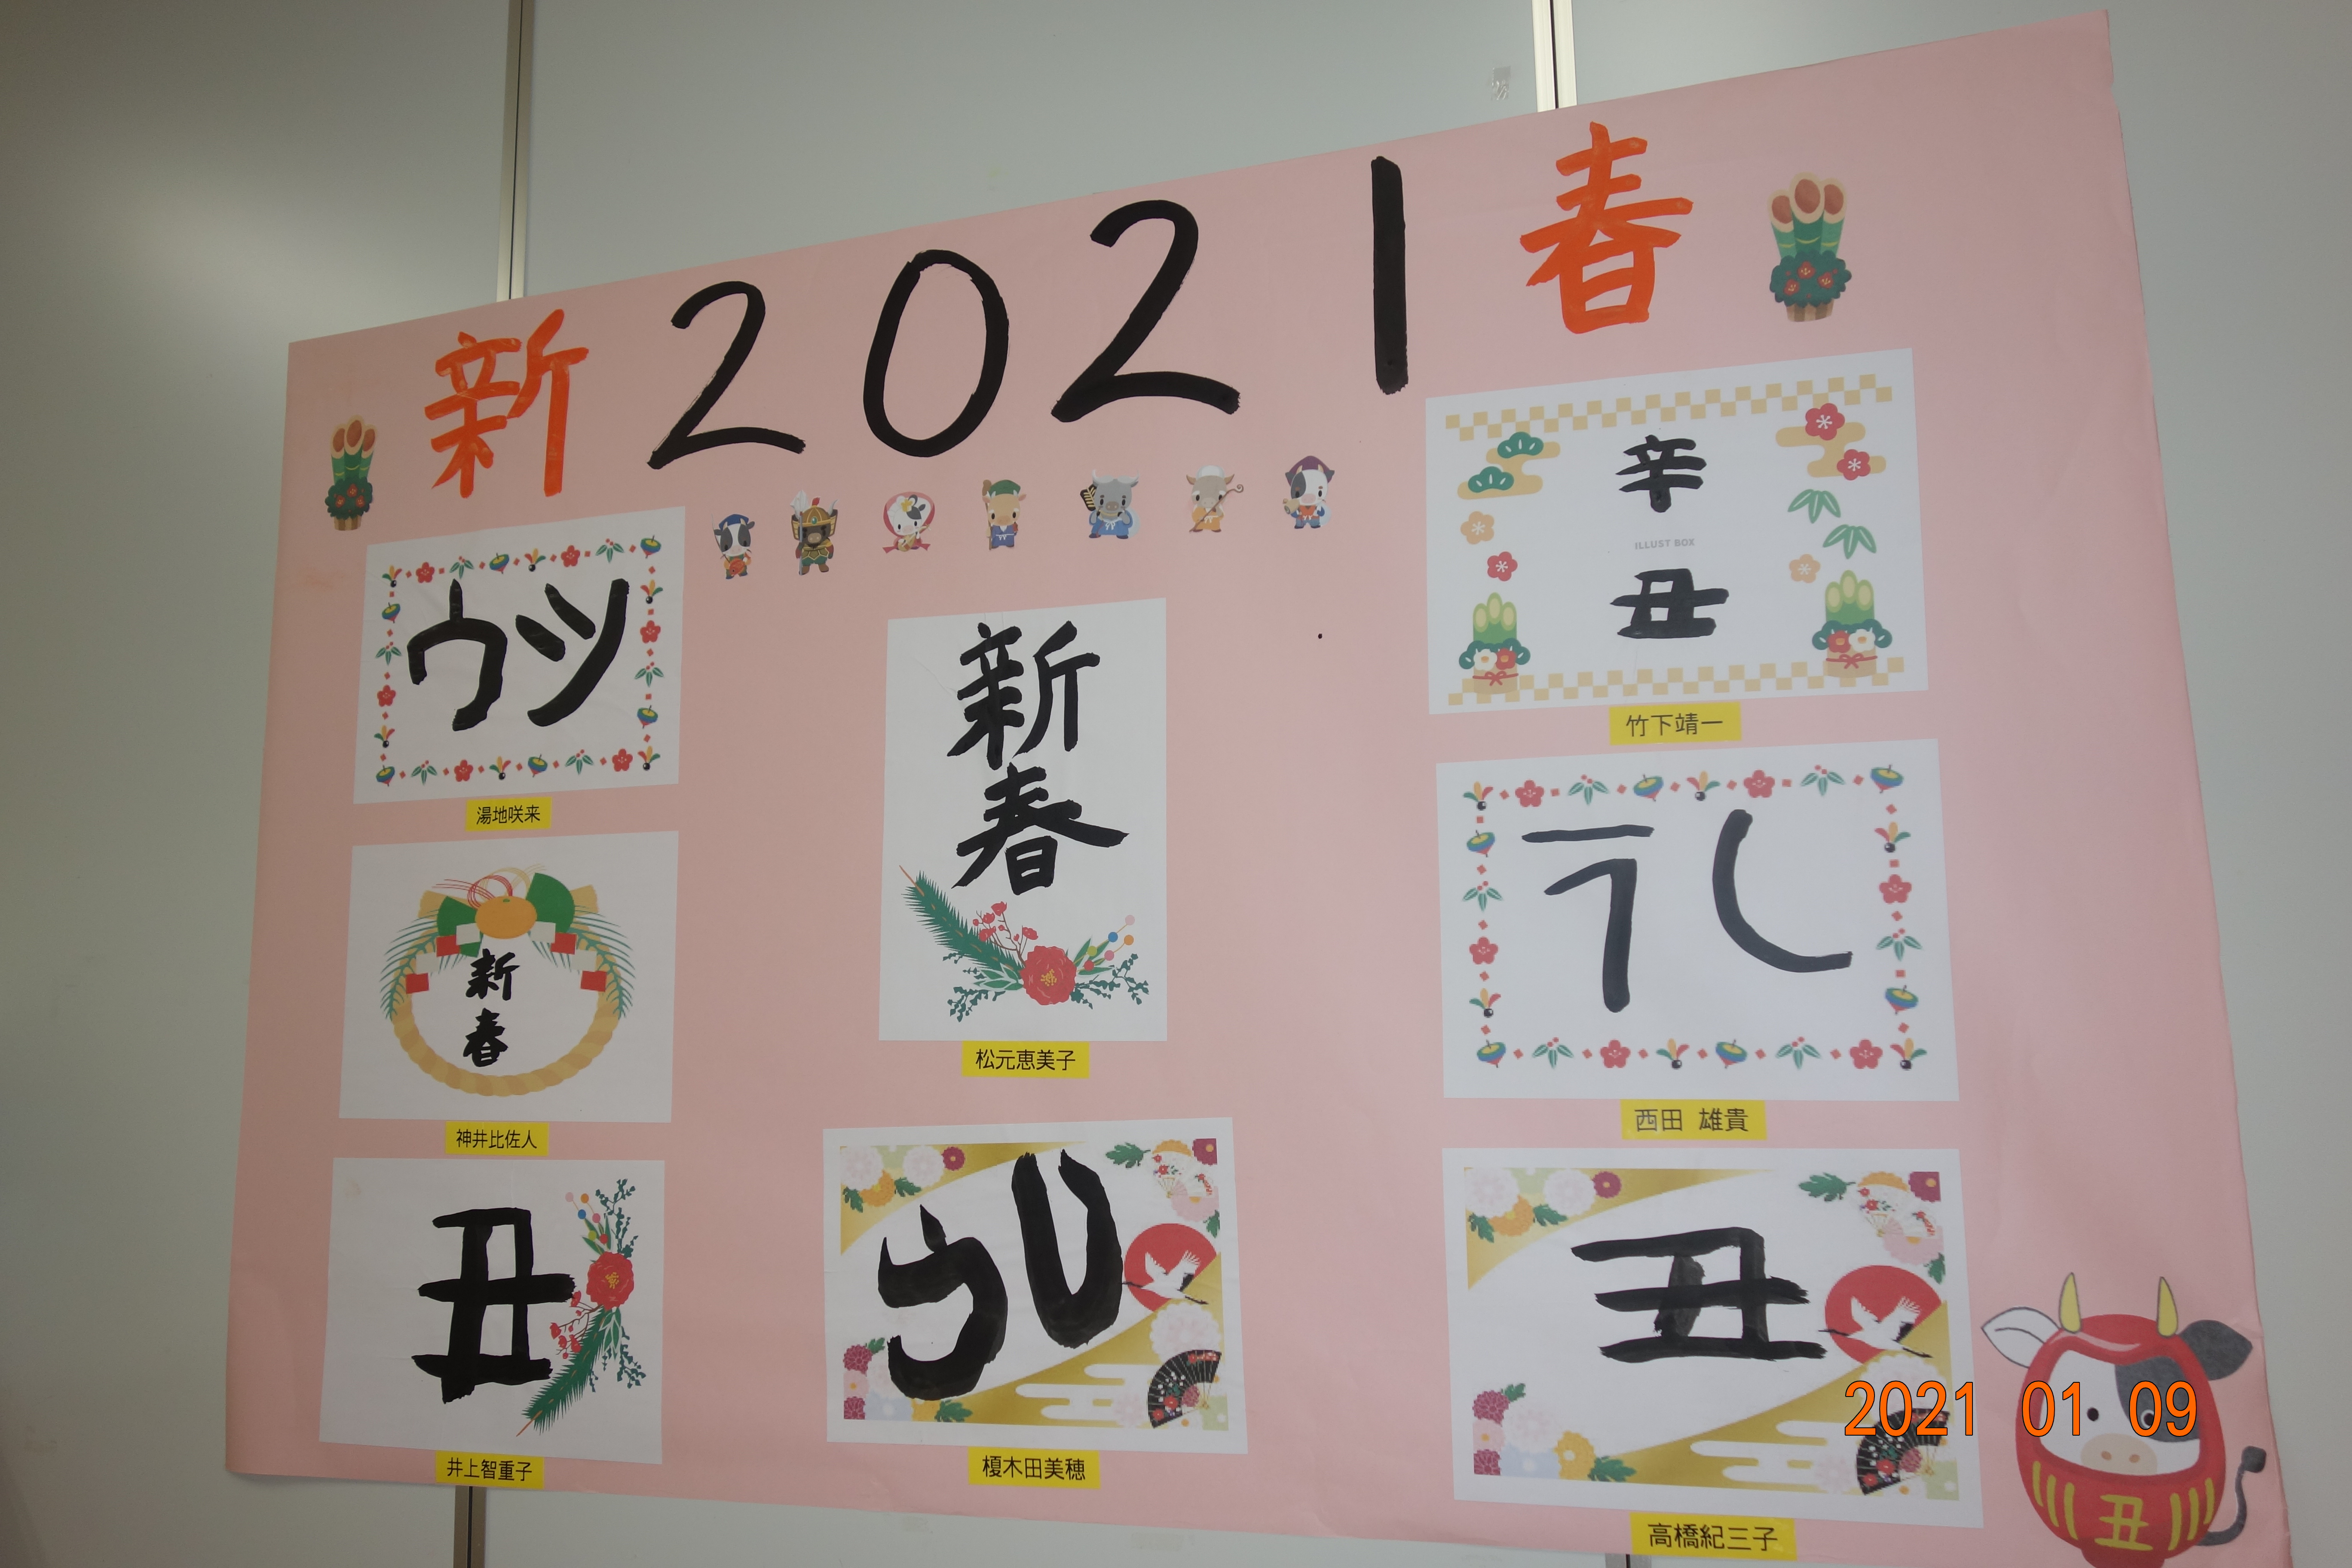 新 2021 春
ウシ
湯地咲来
新
春
神井比佐人
丑
井上智重子
新
春
松元恵美子
うし
榎木田美穂
辛
ILLUST BOX
丑
竹下靖一
西田 雄貴
丑
高橋紀三子
丑
2021 01 09